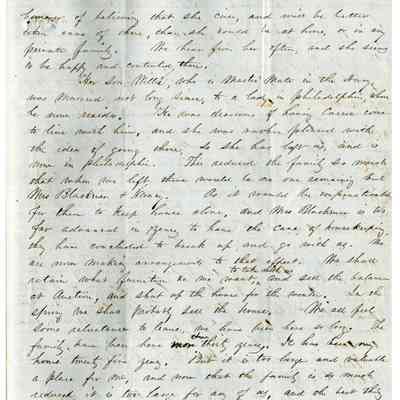 of believing that she can, and will be better
taken care of there, than she would be at home, or in any
private family. We hear from her often, and she seems
to be happy and contented there.
Her son Willie, who is Masters Mate in the Navy
was Married, not long since, to a lady in Philadelphia, where
he now resides. He was desirous of having Carrie come
to live with him, and she was rather pleased with
the idea of going there, so she has left us, and is
now in Philadelphia. This reduced the family so much
that when we left there would be no one remaining but
Mrs Blackmer & Nancy. As it would be impracticable
for them to keep house alone, and Mrs Blackmer is too
far advanced in years, to have the care of housekeeping
they have concluded to break up and go with us. We
are now making arrangements to that effect. We shall
to take with us
retain what furniture we may want and sell the balance
at Auction, and shut up the house for the winter. In the
spring we shall probably sell the house. We all feel
some reluctance to leave, we have been here so long. The
family have been here more than thirty years. It has been my
home twenty five years. But it is too large and valuable
a place for me, and now that the family is so much
reduced it is too large for any of us, and the best they